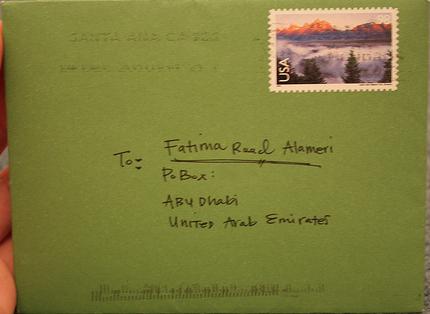 SANTA ANA CA 926
98
USA
To: Fatima Raad Alameri
PoBox:
ABU Dhabi
United Arab Emirates